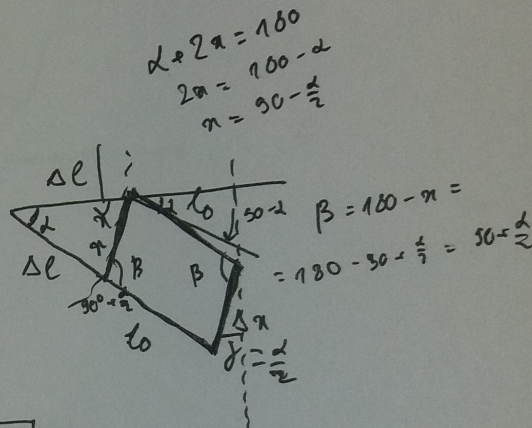 α + 2x = 180
2x = 180 - α
x = 90 - α/2
Δl
l₀
α
x
x
90 - α
β = 180 - x =
= 180 - 90 + α/2 = 90 + α/2
Δl
β
β
90° + α/2
l₀
Δx
γ = α/2